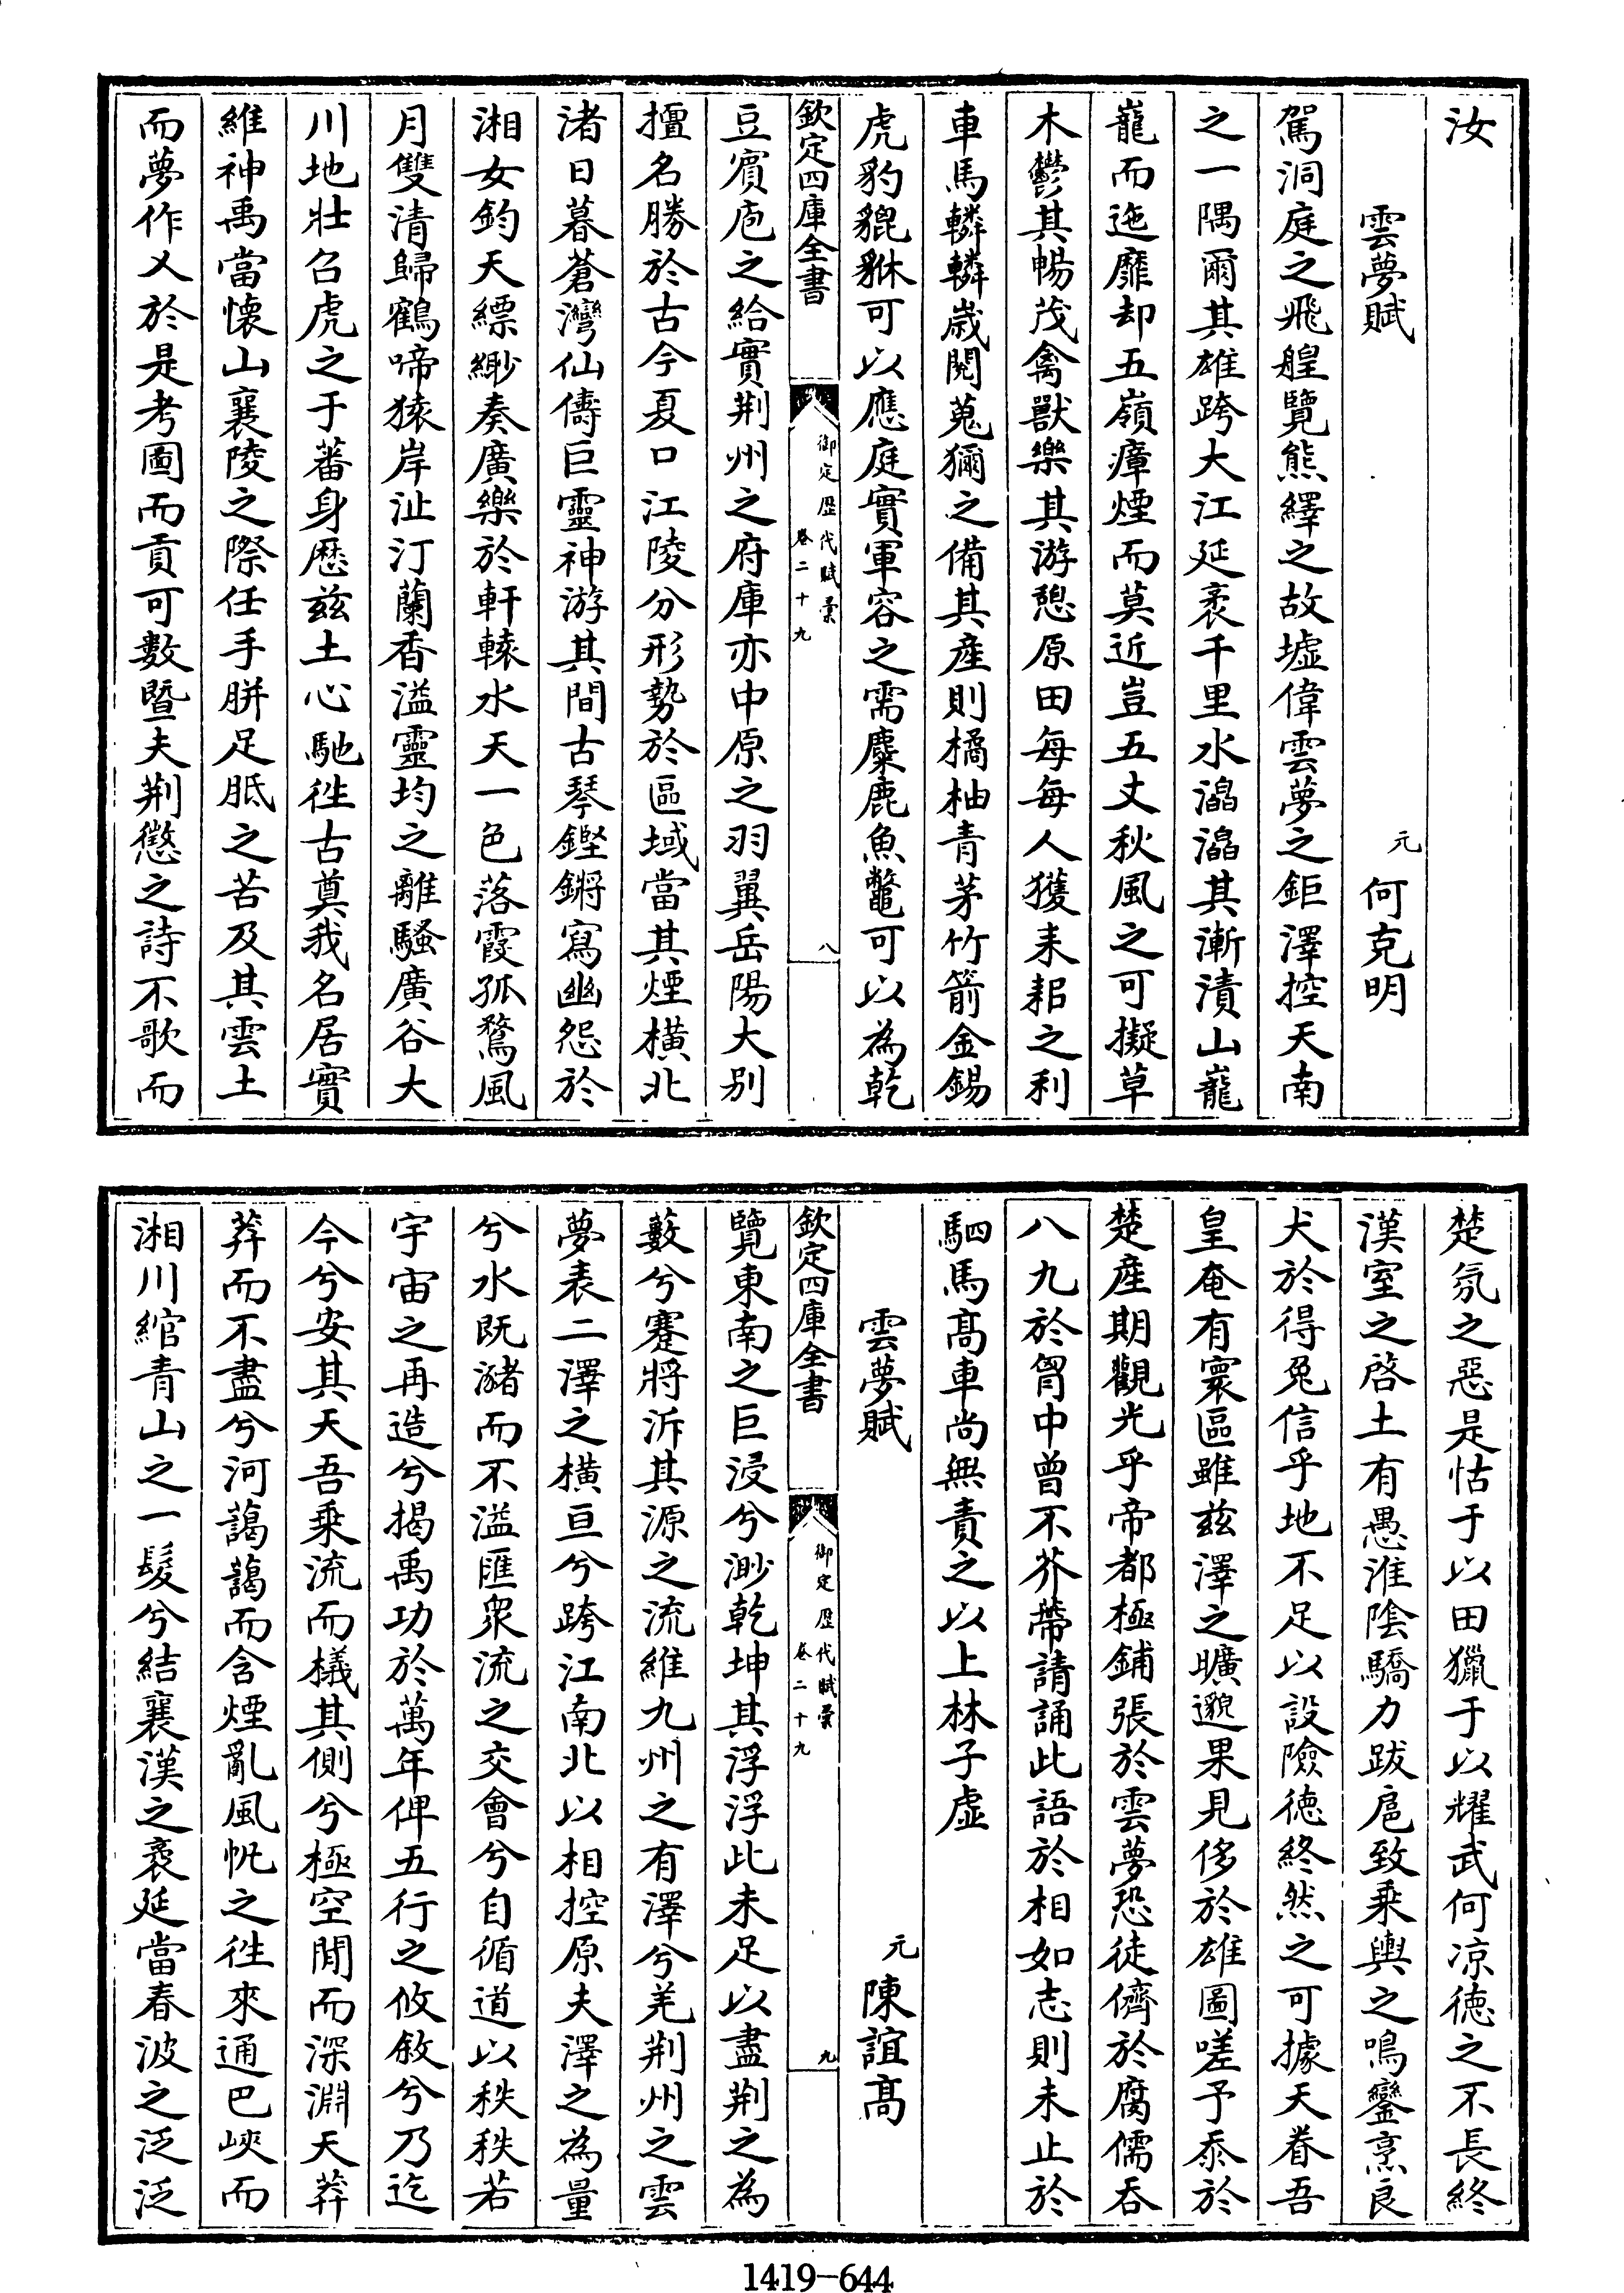 汝
雲夢賦
元 何克明
駕洞庭之飛艎覽熊繹之故墟偉雲夢之鉅澤控天南
之一隅爾其雄跨大江延袤千里水瀛瀛其漸漬山巃
巃而迤靡却五嶺瘴煙而莫近豈五丈秋風之可擬草
木鬱其暢茂禽獸樂其游憩原田每每人獲耒耜之利
車馬轔轔歲閱蒐獮之備其產則橘柚青茅竹箭金錫
虎豹貔貅可以應庭實軍容之需麋鹿魚鼈可以為乾
欽定四庫全書
御定歷代賦彙
卷二十九
八
豆賓庖之給實荆州之府庫亦中原之羽翼岳陽大别
擅名勝於古今夏口江陵分形勢於區域當其煙橫北
渚日暮蒼灣仙儔巨靈神游其間古琴鏗鏘寫幽怨於
湘女鈞天縹緲奏廣樂於軒轅水天一色落霞孤鶩風
月雙清歸鶴啼猿岸沚汀蘭香溢靈均之離騷廣谷大
川地壯召虎之于蕃身歷兹土心馳徃古奠我名居實
維神禹當懷山襄陵之際任手胼足胝之苦及其雲土
而夢作乂於是考圖而貢可數暨夫荆懲之詩不歌而
楚氛之惡是怙于以田獵于以耀武何凉徳之不長終
漢室之啓土有愚淮陰驕力跋扈致乘輿之鳴鑾烹良
犬於得兔信乎地不足以設險徳終然之可據天眷吾
皇奄有寰區雖兹澤之曠邈果見侈於雄圖嗟予忝於
楚產期觀光乎帝都極鋪張於雲夢恐徒儕於腐儒吞
八九於胷中曾不芥蔕請誦此語於相如志則未止於
駟馬髙車尚無責之以上林子虛
雲夢賦
元 陳誼髙
欽定四庫全書
御定歷代賦彙
卷二十九
九
覽東南之巨浸兮渺乾坤其浮浮此未足以盡荆之為
藪兮蹇將泝其源之流維九州之有澤兮羌荆州之雲
夢表二澤之橫亘兮跨江南北以相控原夫澤之為量
兮水既瀦而不溢匯衆流之交會兮自循道以秩秩若
宇宙之再造兮揭禹功於萬年俾五行之攸敘兮乃迄
今兮安其天吾乘流而檥其側兮極空閒而深淵天莽
莽而不盡兮河藹藹而含煙亂風帆之徃來通巴峽而
湘川綰青山之一髮兮結襄漢之袤延當春波之泛泛
1419-644